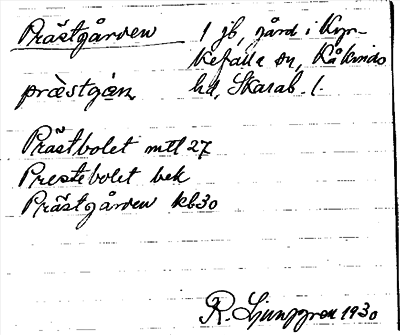 Prästgården 1 jb, gård i Kyr-
kefalla sn, Kåkinds
præ̀stgá̀n hd, Skarab. l.
Prästbolet mtl 27
Prestebolet bek
Prästgården kb30
R. Ljunggren 1930